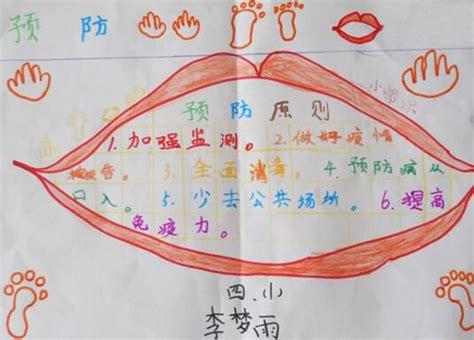 预防
小常识
预防原则
1.加强监测。2.做好疫情
报告。3.全面消毒。4.预防病从
口入。5.少去公共场所。6.提高
免疫力。
四.小
李梦雨